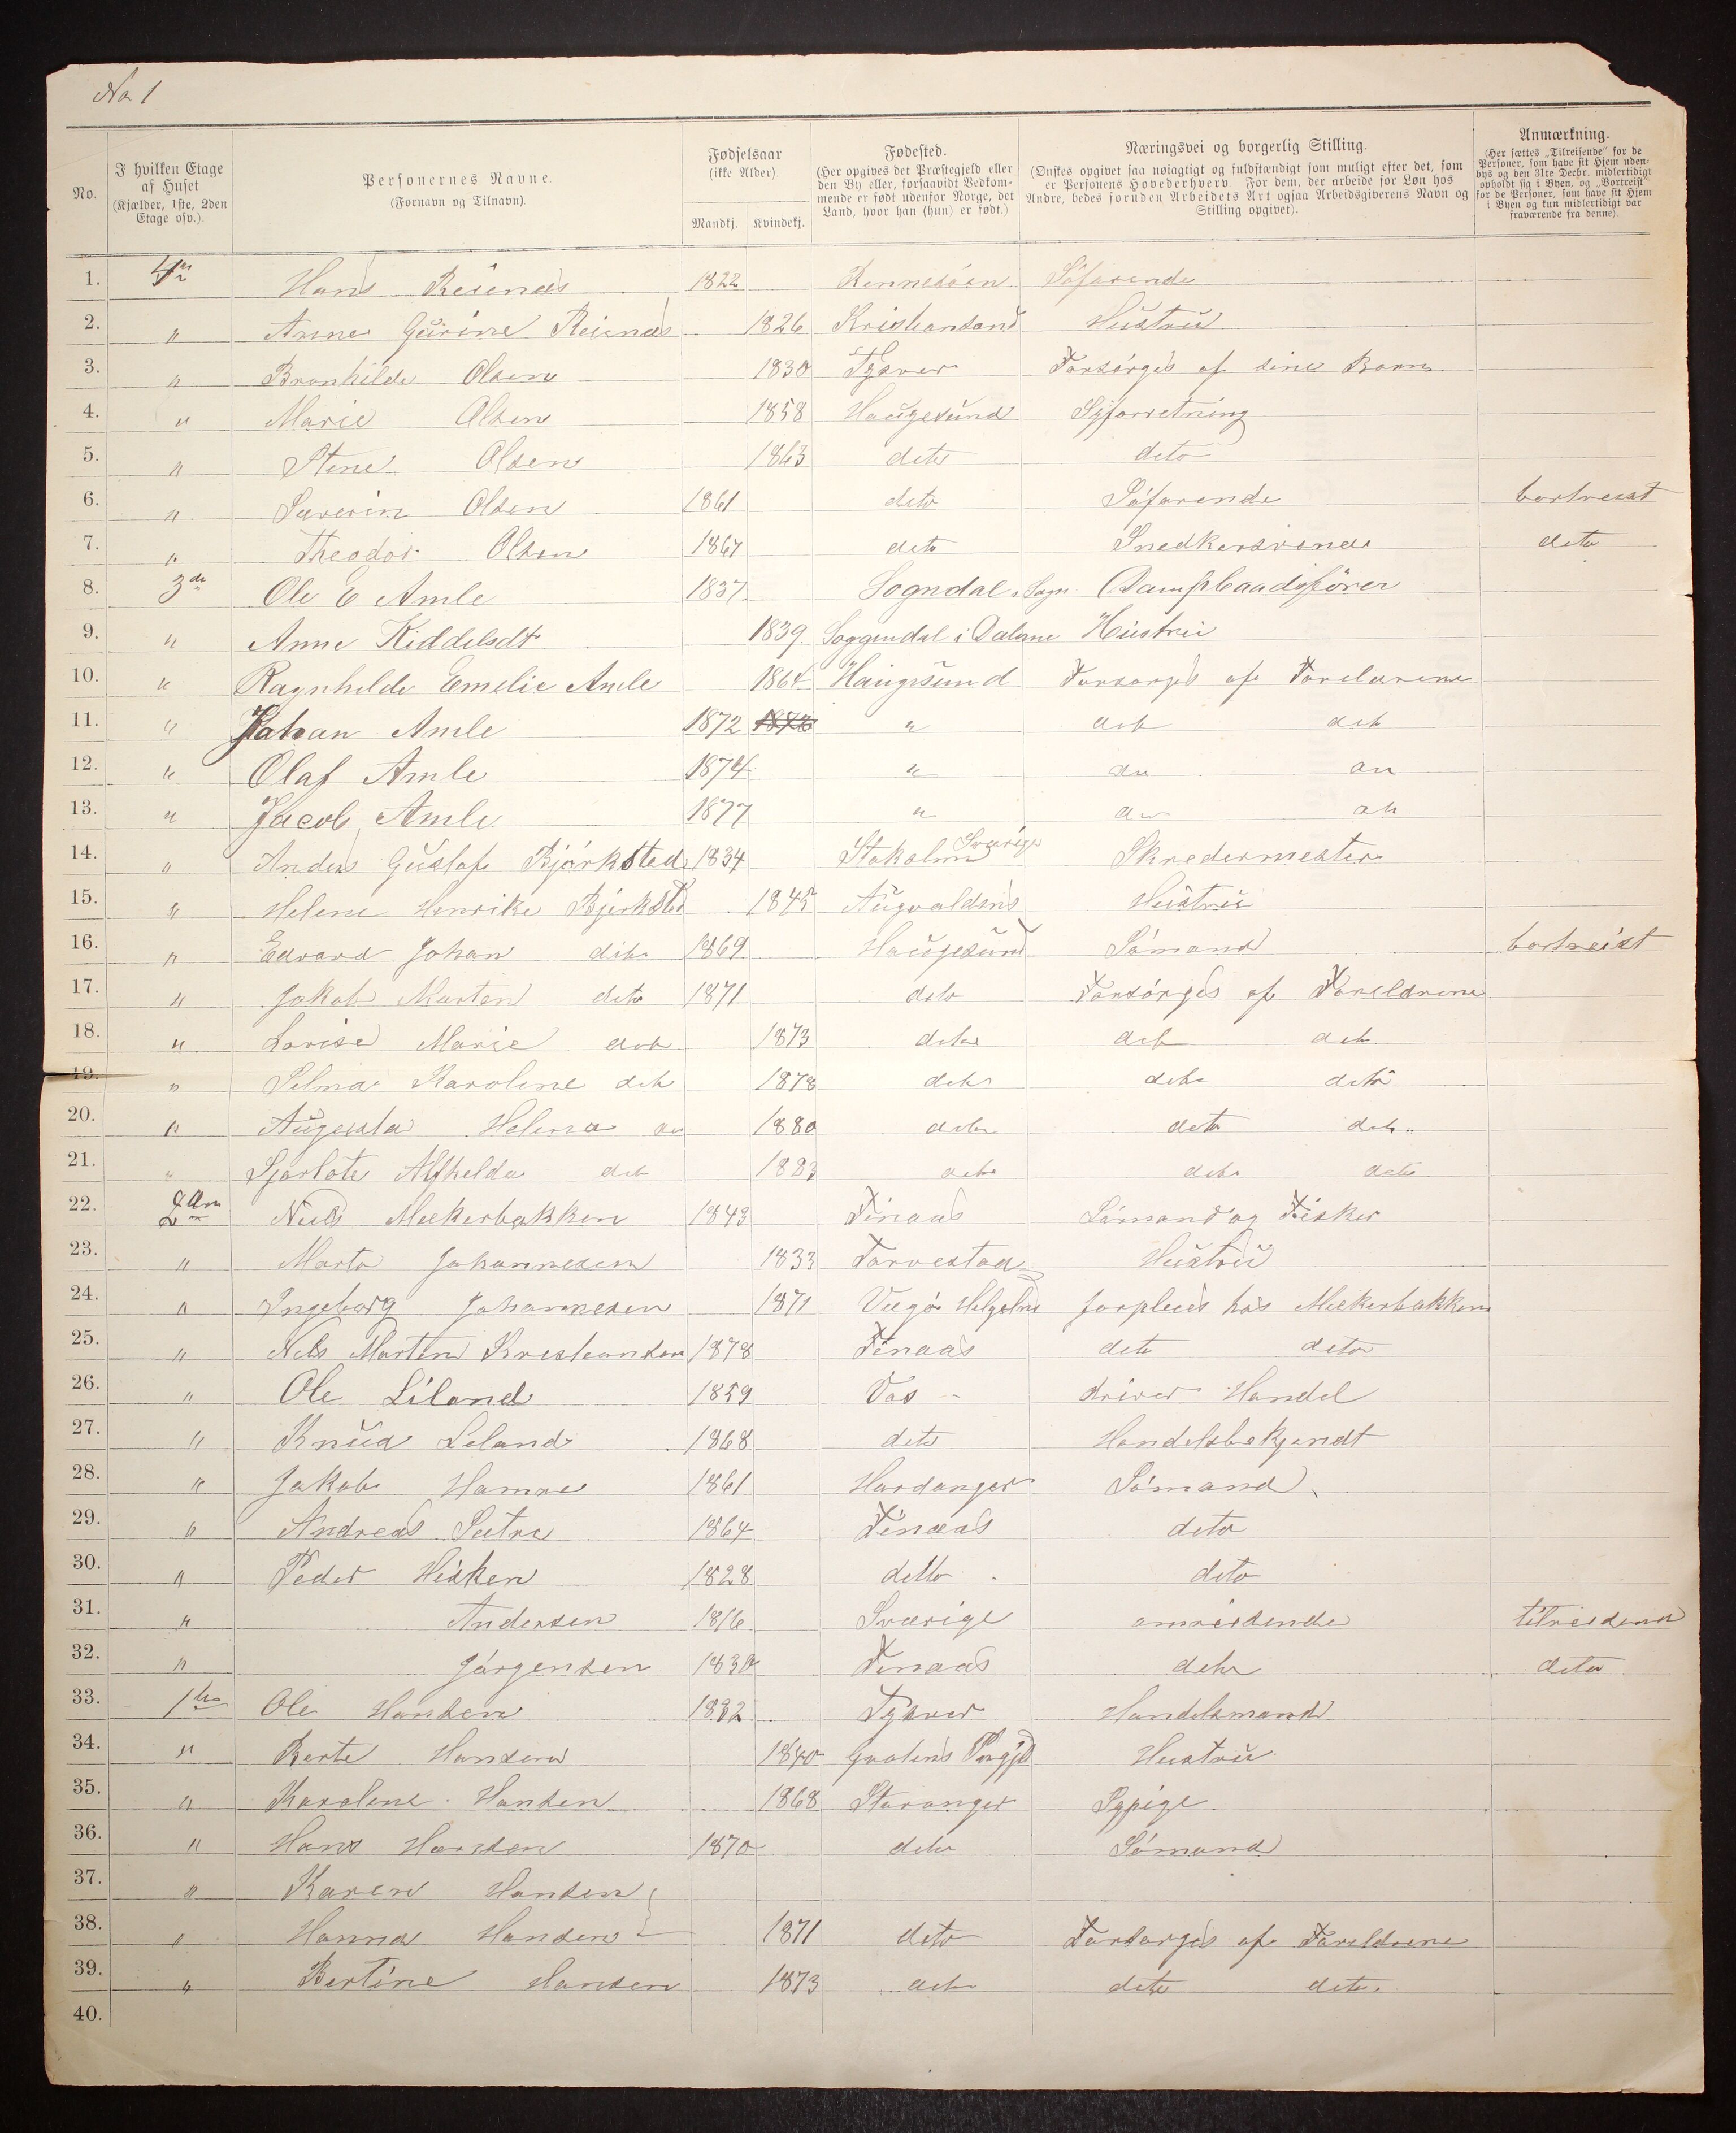 No 1
No.
I hvilken Etage
af Huset
(Kjælder, 1ste, 2den
Etage osv.).
Personernes Navne.
(Fornavn og Tilnavn).
Fødselsaar
(ikke Alder).
Mandkj. Kvindekj.
Fødested.
(Her opgives det Præstegjeld eller
den By eller, forsaavidt Vedkom-
mende er født udenfor Norge, det
Land, hvor han (hun) er født.)
Næringsvei og borgerlig Stilling.
(Ønskes opgivet saa nøiagtigt og fuldstændigt som muligt efter det, som
er Personens Hovederhverv. For dem, der arbeide for Løn hos
Andre, bedes foruden Arbeidets Art ogsaa Arbeidsgiverens Navn og
Stilling opgivet).
Anmærkning.
(Her sættes „Tilreisende“ for de
Personer, som have sit Hjem uden-
bys og den 31te Decbr. midlertidigt
opholdt sig i Byen, og „Bortreist“
for de Personer, som have sit Hjem
i Byen og kun midlertidigt var
fraværende fra denne).
1. Hans Reienæs 1822 Rennesöen Söfarende
2. " Anne Gurine Reienæs 1826 Kristiansand Hustru
3. " Bronhilde Olsen 1830 Tysver Forsörges af sine Born
4. " Marie Olsen 1858 Haugesund Syforretning
5. " Stine Olsen 1863 deto deto
6. " Severin Olsen 1861 deto Söfarende bortreist
7. " Theodor Olsen 1867 deto Snedkersvend deto
8. 3de Ole E Amle 1837 Sogndal i Sogn Dampbaadsförer
9. " Anne Kiddelsdt 1839 Soggendal i Dalene Hustru
10. " Ragnhilde Emelie Amle 1864 Haugesund Forsorges af Forelderene
11. " Johan Amle 1872 " det det
12. " Olaf Amle 1874 "
13. " Jacob Amle 1877 "
14. " Anders Gustaf Bjørksted 1834 Stokolm Sverige Skredermester
15. " Helene Henrike Bjerksted 1845 Augvaldens Hustru
16. " Edvard Johan deto 1869 Haugesund Sömand bortreist
17. " Jakob Marten deto 1871 deto Forsörges af Foreldrene
18. " Lovise Marie deto 1873 deto det det
19. " Selma Karoline deto 1878 deto deto deto
20. " Augusta Helena 1880 deto deto deto
21. " Sjarlote Alfhelda det 1883 deto deto deto
22. Niels Meekerbakken 1843 Finaas Sömand og Fisker
23. " Marta Johannesen 1833 Torvestad Hustru
24. " Ingeborg Johannesen 1871 forpleies hos Meekerbakken
25. " Nels Martin Kristiansen 1878 Finaas deto deto
26. " Ole Liland 1859 Vos driver Handel
27. " Knud Leland 1868 deto Handelsbetjendt
28. " Jakob Hamre 1861 Hardanger Sömand
29. " Andreas Setre 1864 Finaas deto
30. " Peder Hisken 1828 detto deto
31. " Andersen 1816 Sverige omreisende tilreisend
32. " Jörgensen 1830 Finaas deto deto
33. 1ste Ole Hansen 1832 Tysver Handelsmand
34. " Berte Hansen 1840 Hustru
35. " Karoline Hansen 1868 Stavanger Sypige
36. " Hans Hansen 1870 deto Sömand
37. " Karen Hansen
38. " Hanna Hansen 1871 deto Forsorges af Foreldrene
39. " Bertine Hansen 1873 deto deto deto
40.